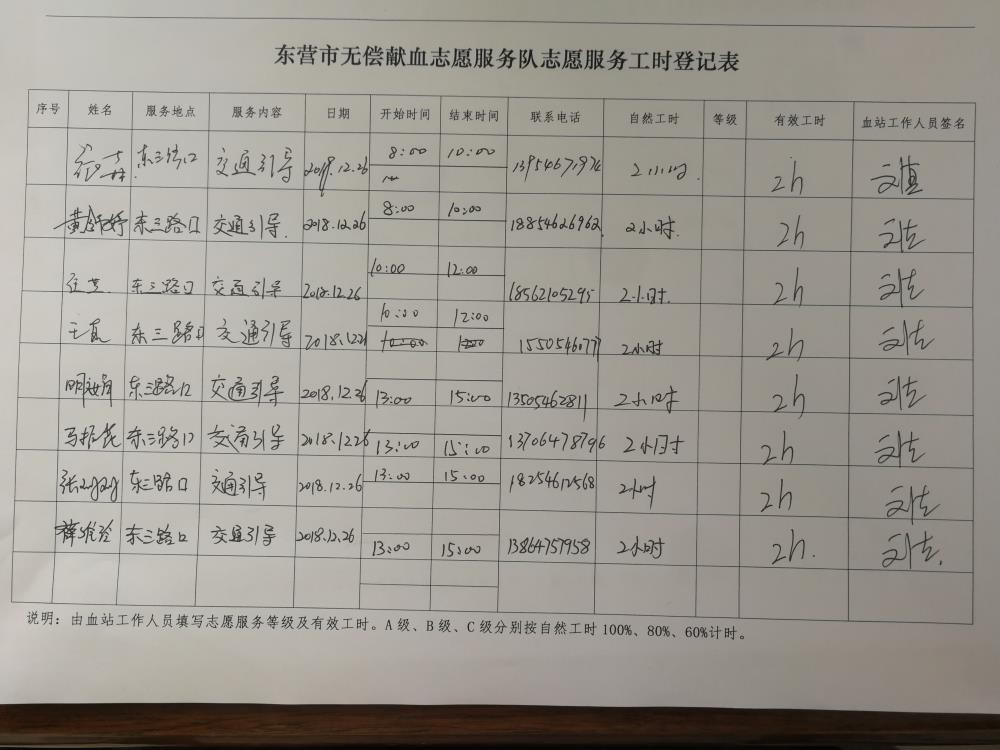 东营市无偿献血志愿服务队志愿服务工时登记表
序号 姓名 服务地点 服务内容 日期 开始时间 结束时间 联系电话 自然工时 等级 有效工时 血站工作人员签名
东三路口 交通引导 2018.12.26 8:00 10:00 2小时. 2h
东三路口 交通引导. 2018.12.26 8:00 10:00 18854626962 2小时. 2h
东三路口 交通引导 2018.12.26 10:00 12:00 18562105295 2小时. 2h
王真 东三路口 交通引导 2018.12.26 10:00 12:00 2小时 2h
东三路口 交通引导 2018.12.26 13:00 15:00 13505462811 2小时 2h
东三路口 交通引导 2018.12.26 13:00 15:00 13706478796 2小时 2h
东三路口 交通引导 2018.12.26 13:00 15:00 18254612568 2小时 2h
东三路口 交通引导 2018.12.26 13:00 15:00 13864757958 2小时 2h.
说明：由血站工作人员填写志愿服务等级及有效工时。A级、B级、C级分别按自然工时100%、80%、60%计时。